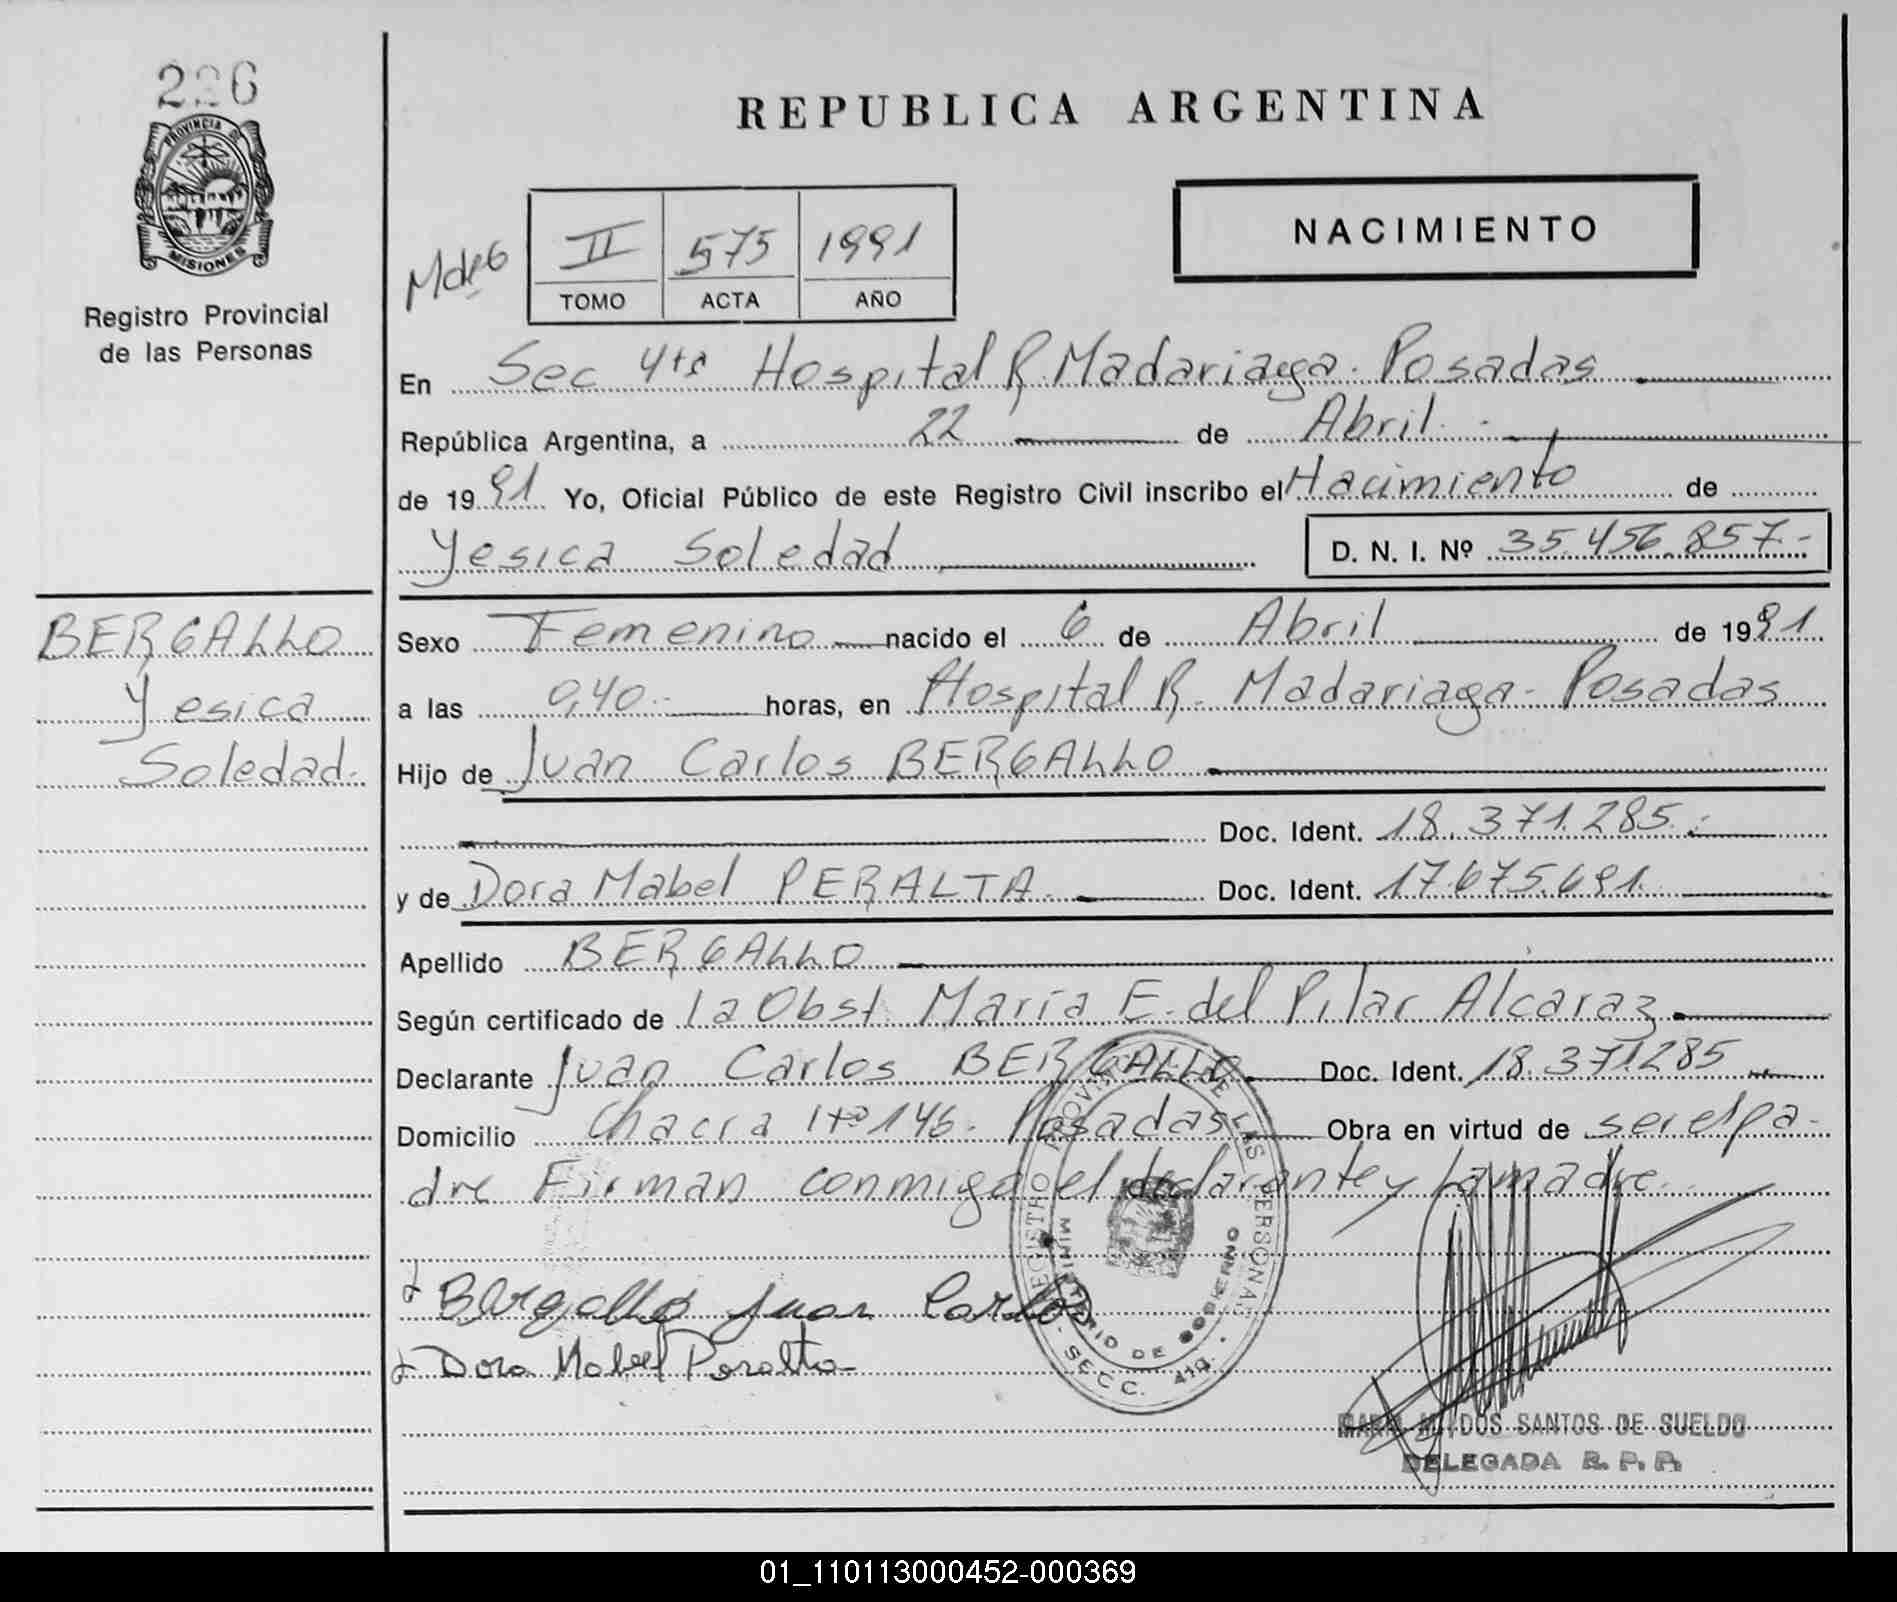 226
PROVINCIA DE
MISIONES
Registro Provincial
de las Personas
REPUBLICA ARGENTINA
NACIMIENTO
II 575 1991
TOMO ACTA AÑO
En Sec 4ta Hospital R. Madariaga. Posadas
República Argentina, a 22 de Abril.
de 1991 Yo, Oficial Público de este Registro Civil inscribo el Nacimiento de
Yesica Soledad D. N. I. Nº 35.456.857.-
BERGALLO
Yesica
Soledad.
Sexo Femenino nacido el 6 de Abril de 1991
a las 0,40.- horas, en Hospital R. Madariaga. Posadas
Hijo de Juan Carlos BERGALLO
Doc. Ident. 18.371.285.-
y de Dora Mabel PERALTA. Doc. Ident. 17.675.691.
Apellido BERGALLO
Según certificado de la Obst. María E. del Pilar Alcaraz
Declarante Juan Carlos BERGALLO. Doc. Ident. 18.371.285
Domicilio Chacra Nº 146. Posadas Obra en virtud de ser el pa-
dre Firman conmigo el declarante y la madre.
Bergallo Juan Carlos
Dora Mabel Peralta
REGISTRO PROVINCIAL DE LAS PERSONAS
MINISTERIO DE GOBIERNO
SECC. 4ta.
MARIA M. DOS SANTOS DE SUELDO
DELEGADA R. P. P.
01_110113000452-000369